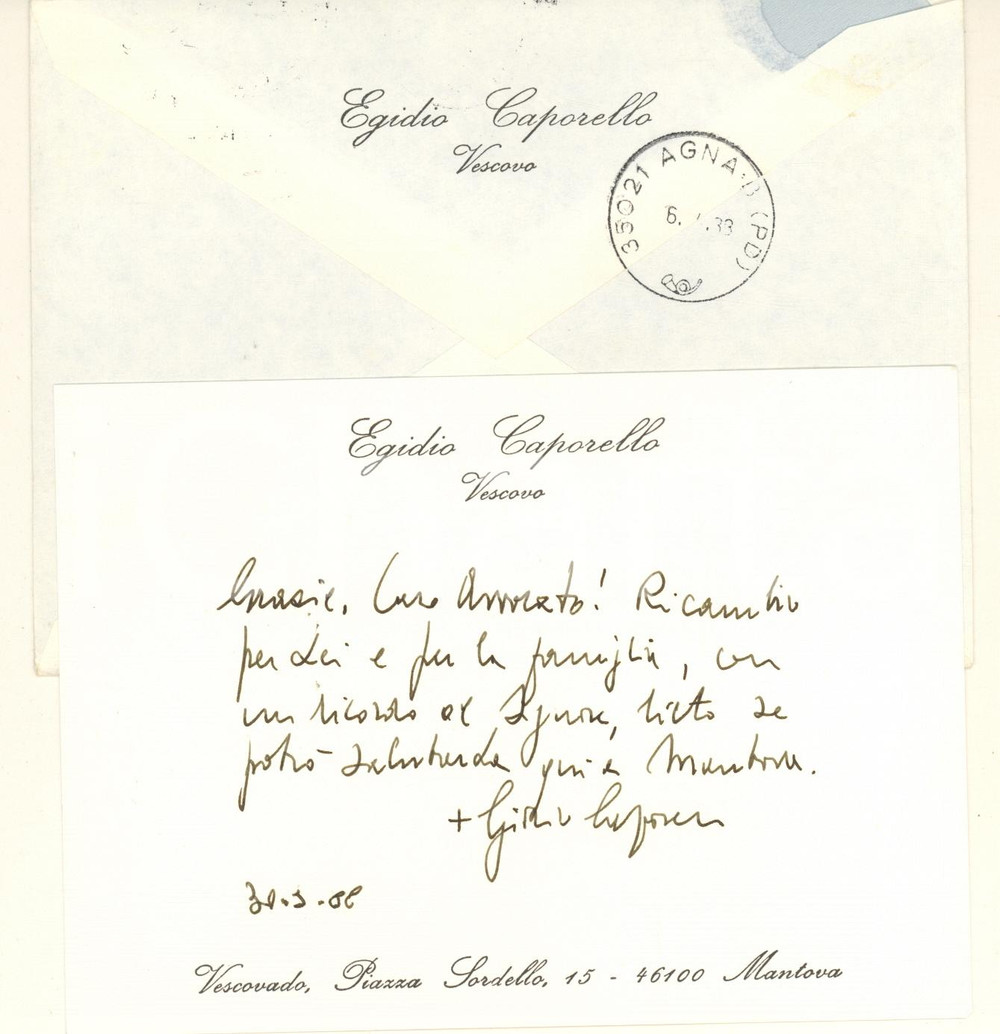 Egidio Caporello
Vescovo
35021 AGNA (PD)
6. .88
Egidio Caporello
Vescovo
Grazie, Caro Avvocato! Ricambio
per Lei e per la famiglia, con
un ricordo al Signore, lieto se
potrò salutarLa qui a Mantova.
+ Egidio Caporello
30.3.88
Vescovado, Piazza Sordello, 15 - 46100 Mantova